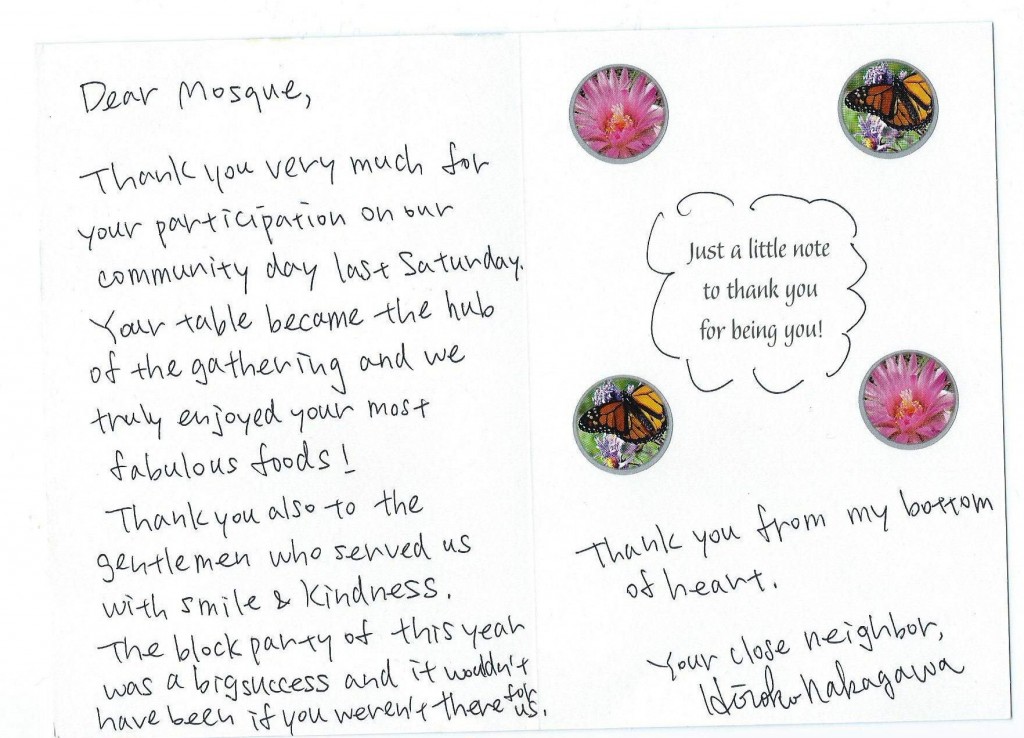 Dear Mosque,
Thank you very much for
your participation on our
community day last Saturday.
Your table became the hub
of the gathering and we
truly enjoyed your most
fabulous foods!
Thank you also to the
gentlemen who served us
with smile & kindness.
The block party of this year
was a big success and it wouldn't
have been if you weren't there for us.
Just a little note
to thank you
for being you!
Thank you from my bottom
of heart.
Your close neighbor,
Hiroko Nakagawa